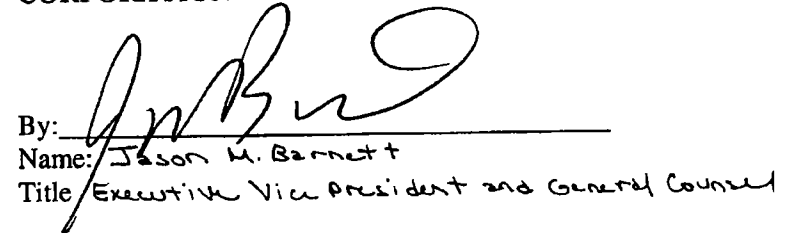 By:
Name: Jason M. Barnett
Title Executive Vice President and General Counsel